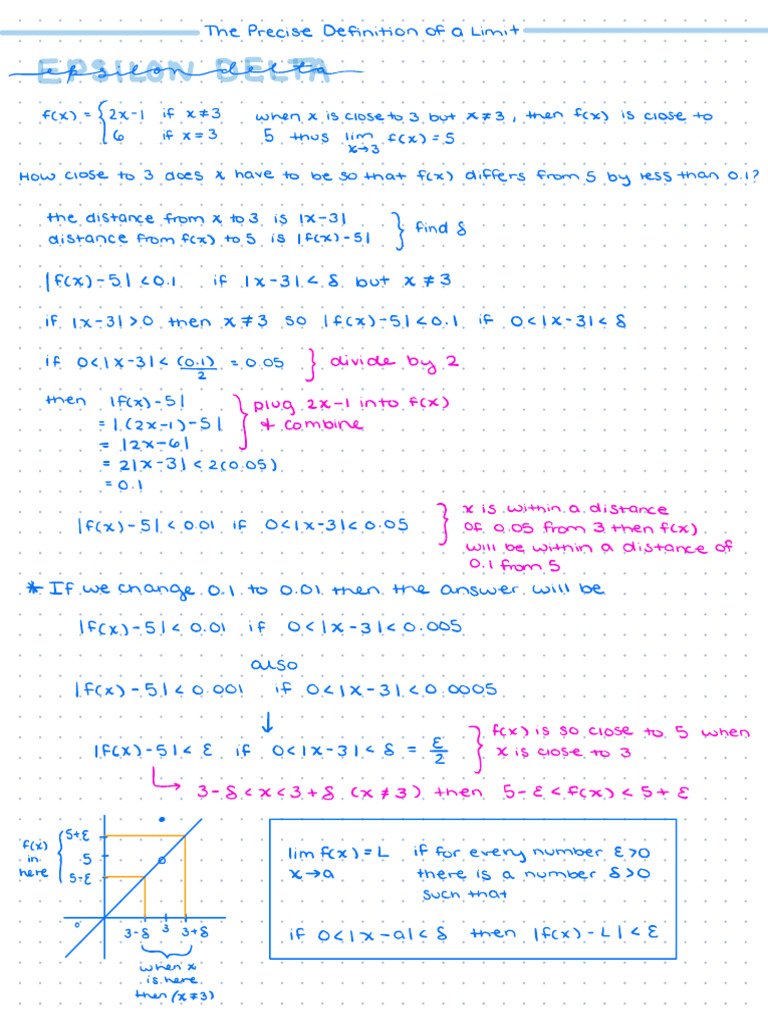 The Precise Definition of a Limit
EPSILON DELTA
epsilon delta
f(x) = { 2x-1 if x≠3 when x is close to 3 but x≠3, then f(x) is close to
6 if x=3 5 thus lim f(x) = 5
x→3
How close to 3 does x have to be so that f(x) differs from 5 by less than 0.1?
the distance from x to 3 is |x-3|
distance from f(x) to 5 is |f(x)-5| } find δ
|f(x)-5| < 0.1 if |x-3| < δ but x ≠ 3
if |x-3| > 0 then x≠3 so |f(x)-5| < 0.1 if 0<|x-3| < δ
if 0<|x-3| < (0.1)/2 = 0.05 } divide by 2
then |f(x)-5| } plug 2x-1 into f(x)
= |(2x-1)-5| & combine
= |2x-6|
= 2|x-3| < 2(0.05)
= 0.1
|f(x)-5| < 0.01 if 0<|x-3| < 0.05 } x is within a distance
of 0.05 from 3 then f(x)
will be within a distance of
0.1 from 5
* If we change 0.1 to 0.01 then the answer will be
|f(x)-5| < 0.01 if 0<|x-3| < 0.005
also
|f(x)-5| < 0.001 if 0<|x-3| < 0.0005
↓
|f(x)-5| < ε if 0<|x-3| < δ = ε/2 } f(x) is so close to 5 when
x is close to 3
↳ 3-δ < x < 3+δ (x≠3) then 5-ε < f(x) < 5+ε
f(x)
in
here
5+ε
5
5-ε
0
3-δ 3 3+δ
when x
is here
then (x≠3)
lim f(x) = L if for every number ε>0
x→a there is a number δ>0
such that
if 0<|x-a| < δ then |f(x)-L| < ε